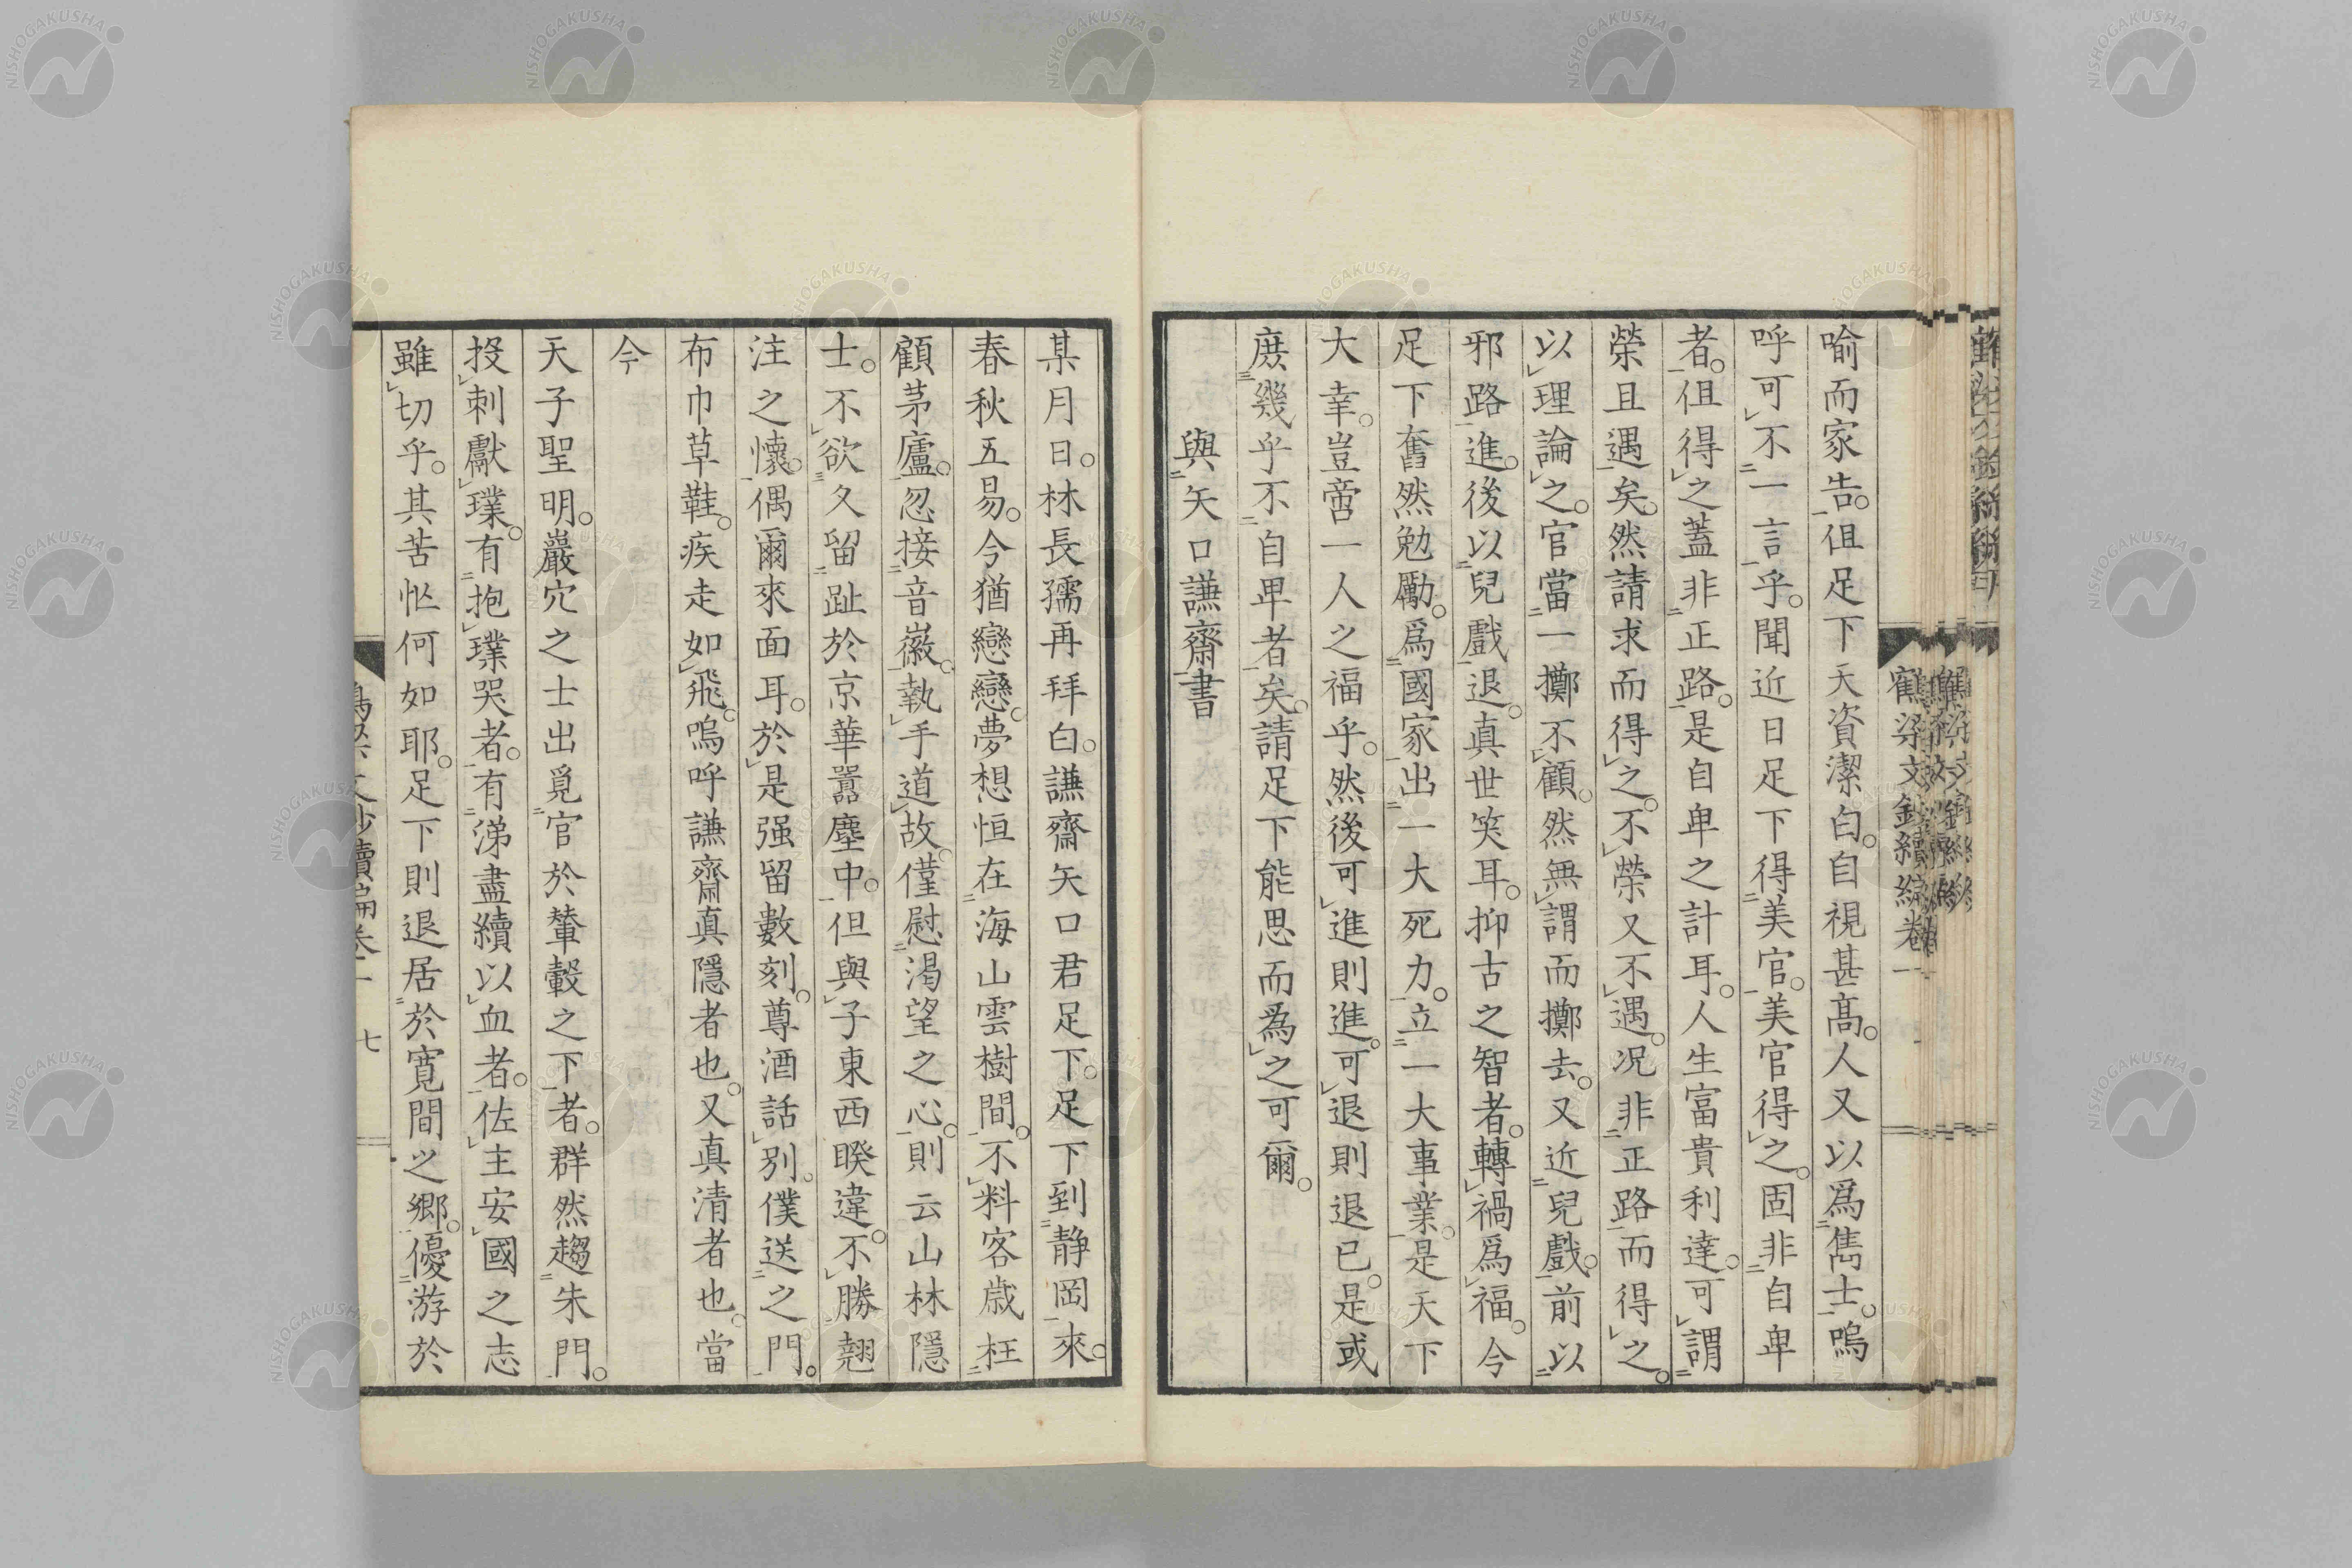 喻而家告。伹足下天資潔白。自視甚高。人又以爲雋士。嗚
呼可不一言乎。聞近日足下得美官。美官得之。固非自卑
者。伹得之蓋非正路。是自卑之計耳。人生富貴利達。可謂
榮且遇矣。然請求而得之。不榮又不遇。况非正路而得之。
以理論之。官當一擲不顧。然無謂而擲去。又近兒戲。前以
邪路進。後以兒戲退。真世笑耳。抑古之智者。轉禍爲福。今
足下奮然勉勵。爲國家出一大死力。立一大事業。是天下
大幸。豈啻一人之福乎。然後可進則進。可退則退已。是或
庶幾乎不自卑者矣。請足下能思而為之可爾。
與矢口謙齋書
某月日。林長孺再拜白。謙齋矢口君足下。足下到静岡來。
春秋五易。今猶戀戀。夢想恒在海山雲樹間。不料客歲枉
顧茅廬。忽接音徽。執手道故。僅慰渴望之心。則云山林隱
士。不欲久留趾於京華囂塵中。但與子東西睽違。不勝翹
注之懷。偶爾來面耳。於是强留數刻。尊酒話別。僕送之門。
布巾草鞋。疾走如飛。嗚呼謙齋真隱者也。又真清者也。當
今
天子聖明。巖穴之士出覓官於輦轂之下者。群然趨朱門。
投刺獻璞。有抱璞哭者。有涕盡續以血者。佐主安國之志
雖切乎。其苦心何如耶。足下則退居於寬間之鄉。優游於
鶴梁文鈔續編卷一
七
NISHOGAKUSHA